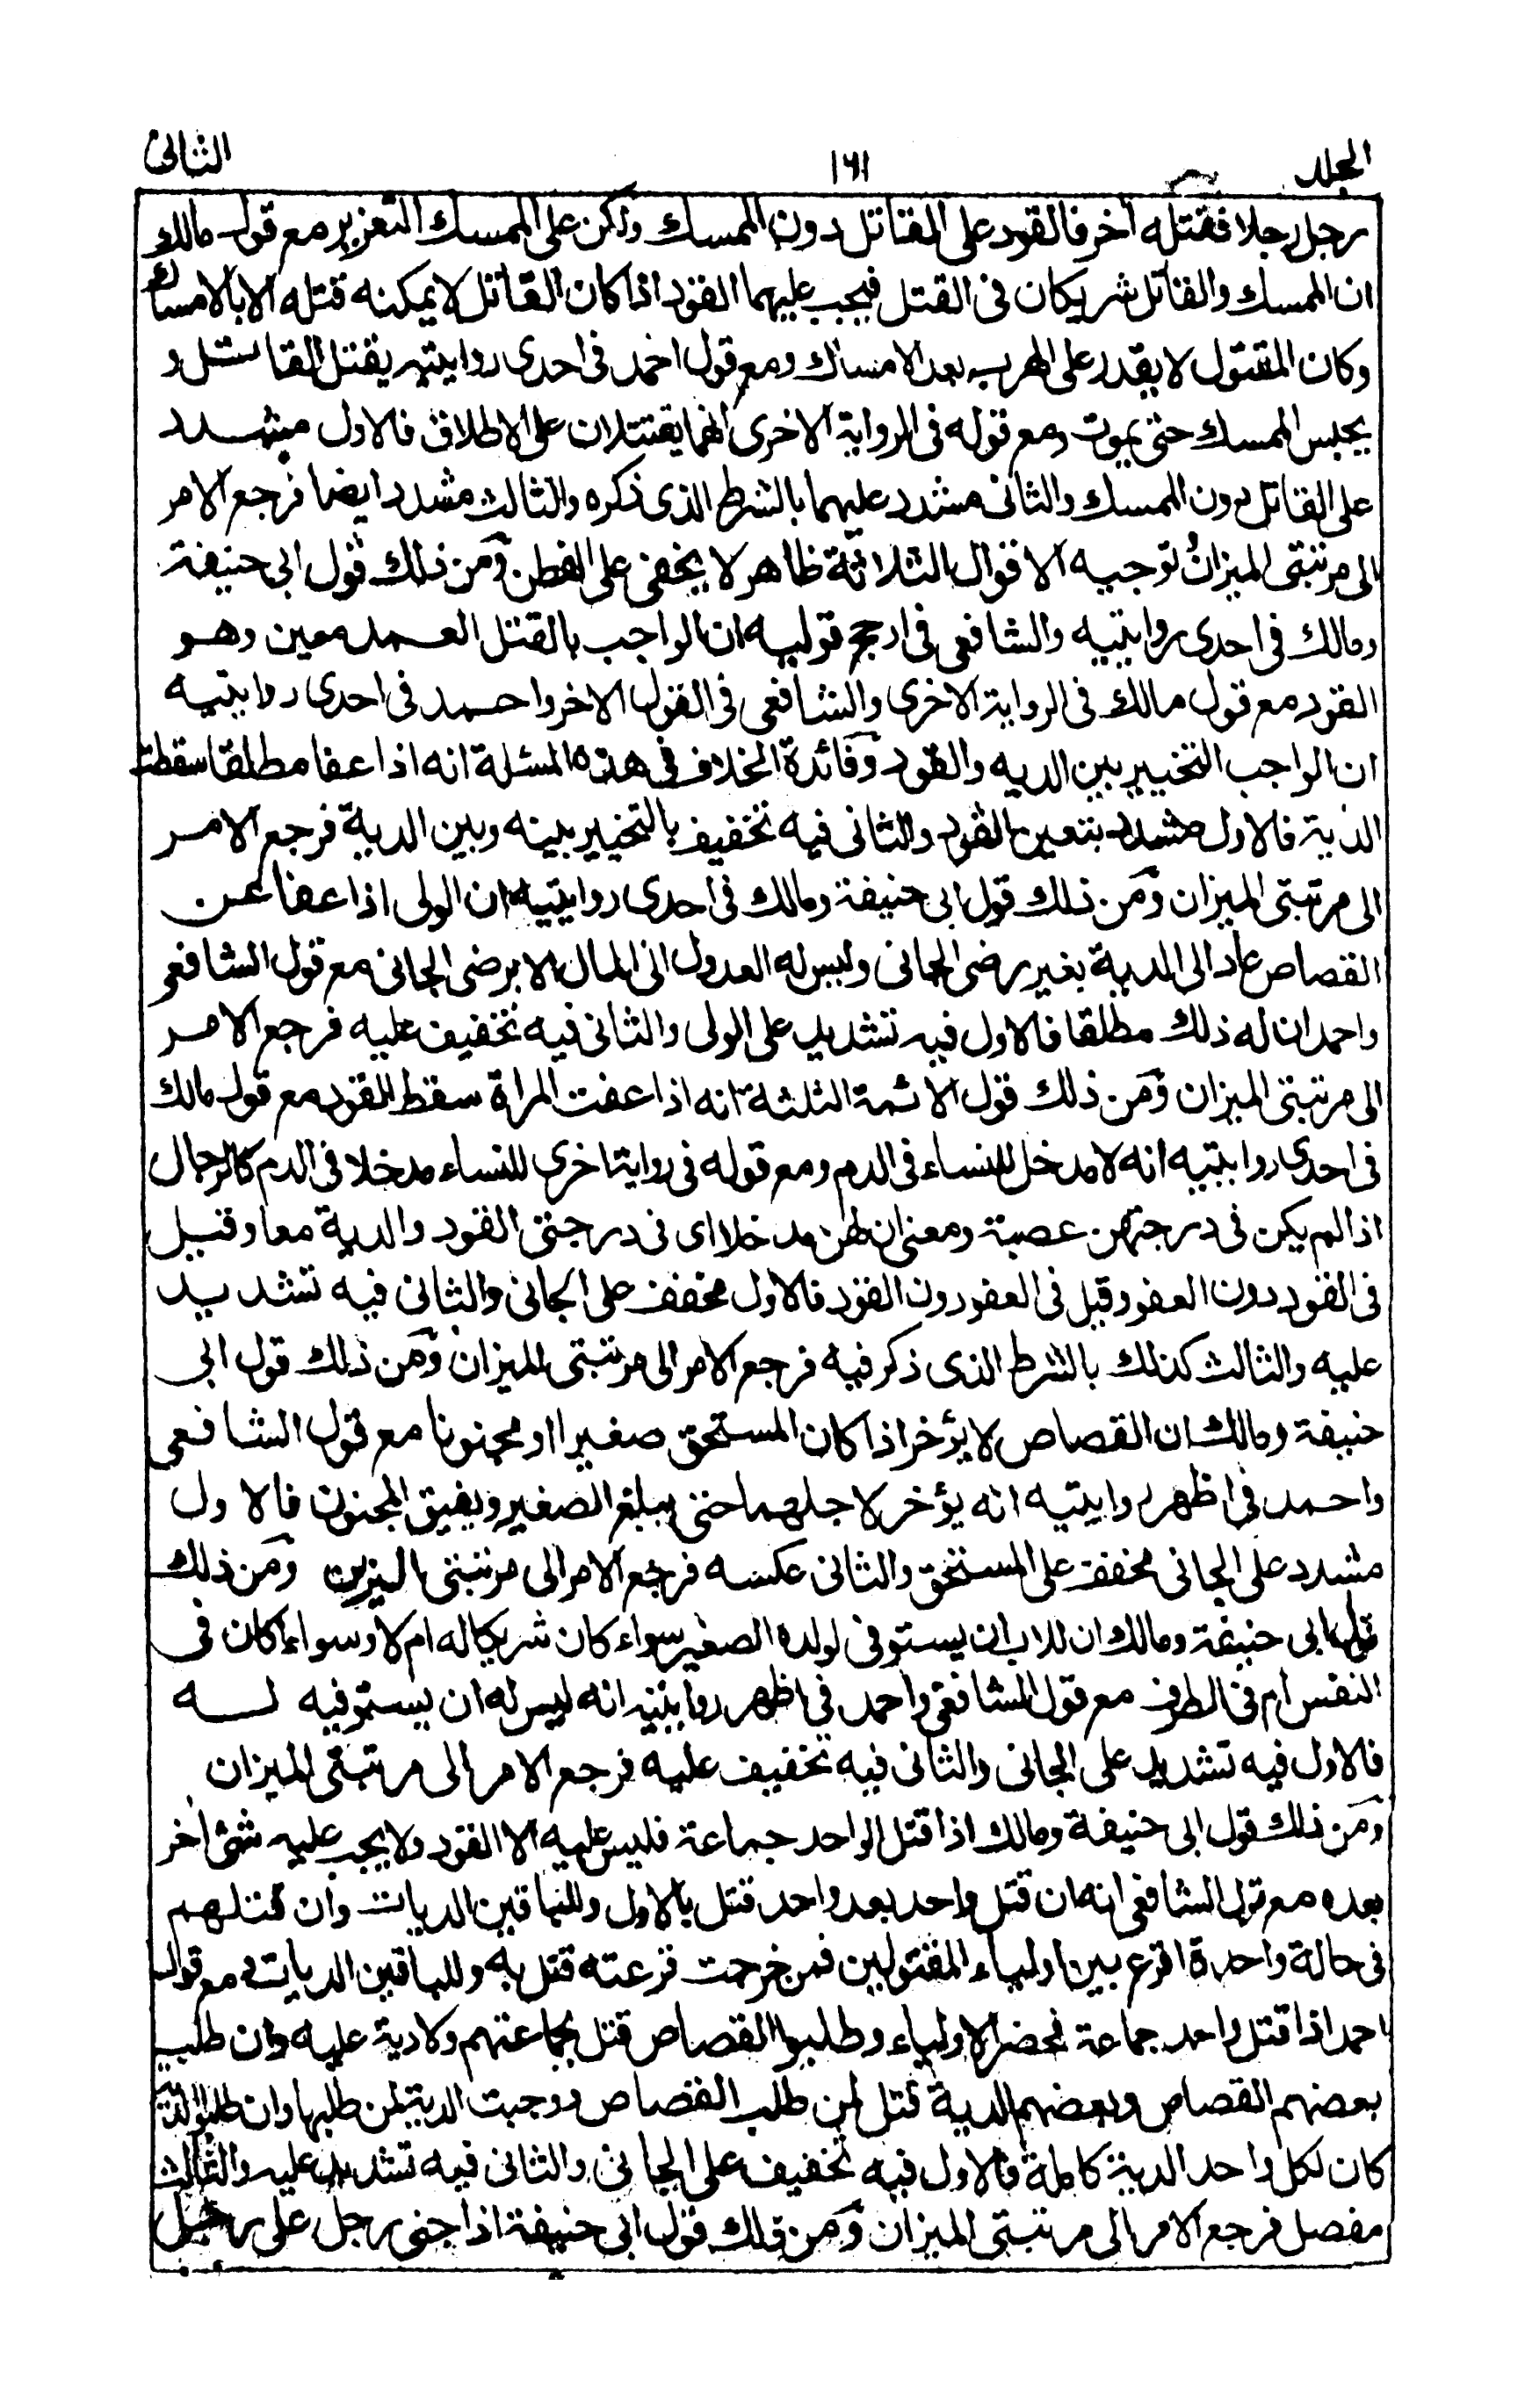 الجلد
١٦١
الثانى
رجل رجلا فقتله آخر فالقود على القاتل دون الممسك ولكن على الممسك التعزير مع قول مالك
ان الممسك والقاتل شريكان فى القتل فيجب عليهما القود اذا كان القاتل لا يمكنه قتله الا بالامساك
وكان المقتول لا يقدر على الهرب بعد الامساك ومع قول احمد فى احدى روايتيه يقتل القاتل و
يحبس الممسك حتى يموت ومع قوله فى الرواية الاخرى انهما يقتتلان على الاطلاق فالاول مشدد
على القاتل دون الممسك والثانى مشدد عليهما بالشرط الذى ذكره والثالث مشدد ايضا فرجع الامر
الى مرتبتى الميزان وتوجيه الاقوال الثلاثة ظاهر لا يخفى على الفطن ومن ذلك قول ابى حنيفة
ومالك فى احدى روايتيه والشافعى فى ارجح قوليه ان الواجب بالقتل العمد معين وهو
القود مع قول مالك فى الرواية الاخرى والشافعى فى القول الاخر واحمد فى احدى روايتيه
ان الواجب التخيير بين الديه والقود وفائدة الخلاف فى هذه المسئلة انه اذا عفا مطلقا سقطت
الدية فالاول مشدد بتعين القود والثانى فيه تخفيف بالتخيير بينه وبين الدية فرجع الامر
الى مرتبتى الميزان ومن ذلك قول ابى حنيفة ومالك فى احدى روايتيه ان الولى اذا عفا عن
القصاص عاد الى الدية بغير رضى الجانى وليس له العدول الى المال الا برضى الجانى مع قول الشافعى
واحمد ان له ذلك مطلقا فالاول فيه تشديد على الولى والثانى فيه تخفيف عليه فرجع الامر
الى مرتبتى الميزان ومن ذلك قول الائمة الثلثة انه اذا عفت المراة سقط القود مع قول مالك
فى احدى روايتيه انه لا مدخل للنساء فى الدم ومع قوله فى رواية اخرى للنساء مدخلا فى الدم كالرجال
اذا لم يكن فى درجتهن عصبة ومعنى ان لهن مدخلا اى فى درجتى القود والدية معا وقيل
فى القود دون العفو وقيل فى العفو دون القود فالاول مخفف على الجانى والثانى فيه تشديد
عليه والثالث كذلك بالشرط الذى ذكر فيه فرجع الامر الى مرتبتى الميزان ومن ذلك قول ابى
حنيفة ومالك ان القصاص لا يؤخر اذا كان المستحق صغيرا او مجنونا مع قول الشافعى
واحمد فى اظهر روايتيه انه يؤخر لاجلهما حتى يبلغ الصغير ويفيق المجنون فالاول
مشدد على الجانى مخفف على المستحق والثانى عكسه فرجع الامر الى مرتبتى الميزان ومن ذلك
قول ابى حنيفة ومالك ان للاب ان يستوفى لولده الصغير سواء كان شريكا له ام لا وسواء كان فى
النفس ام فى الطرف مع قول الشافعى واحمد فى اظهر روايتيه انه ليس له ان يستوفيه له
فالاول فيه تشديد على الجانى والثانى فيه تخفيف عليه فرجع الامر الى مرتبتى الميزان
ومن ذلك قول ابى حنيفة ومالك اذا قتل الواحد جماعة فليس عليه الا القود ولا يجب عليه شئ اخر
بعده مع قول الشافعى انه ان قتل واحد بعد واحد قتل بالاول وللباقين الديات وان قتلهم
فى حالة واحدة اقرع بين اولياء المقتولين فمن خرجت قرعته قتل به وللباقين الديات ومع قول
احمد اذا قتل واحد جماعة فحضر الاولياء وطلبوا القصاص قتل بجماعتهم ولا دية عليه وان طلب
بعضهم القصاص وبعضهم الدية قتل لمن طلب القصاص ووجبت الدية لمن طلبها وان طلبوا الدية
كان لكل واحد الدية كاملة فالاول فيه تخفيف على الجانى والثانى فيه تشديد عليه والثالث
مفصل فرجع الامر الى مرتبتى الميزان ومن ذلك قول ابى حنيفة اذا جنى رجل على رجل